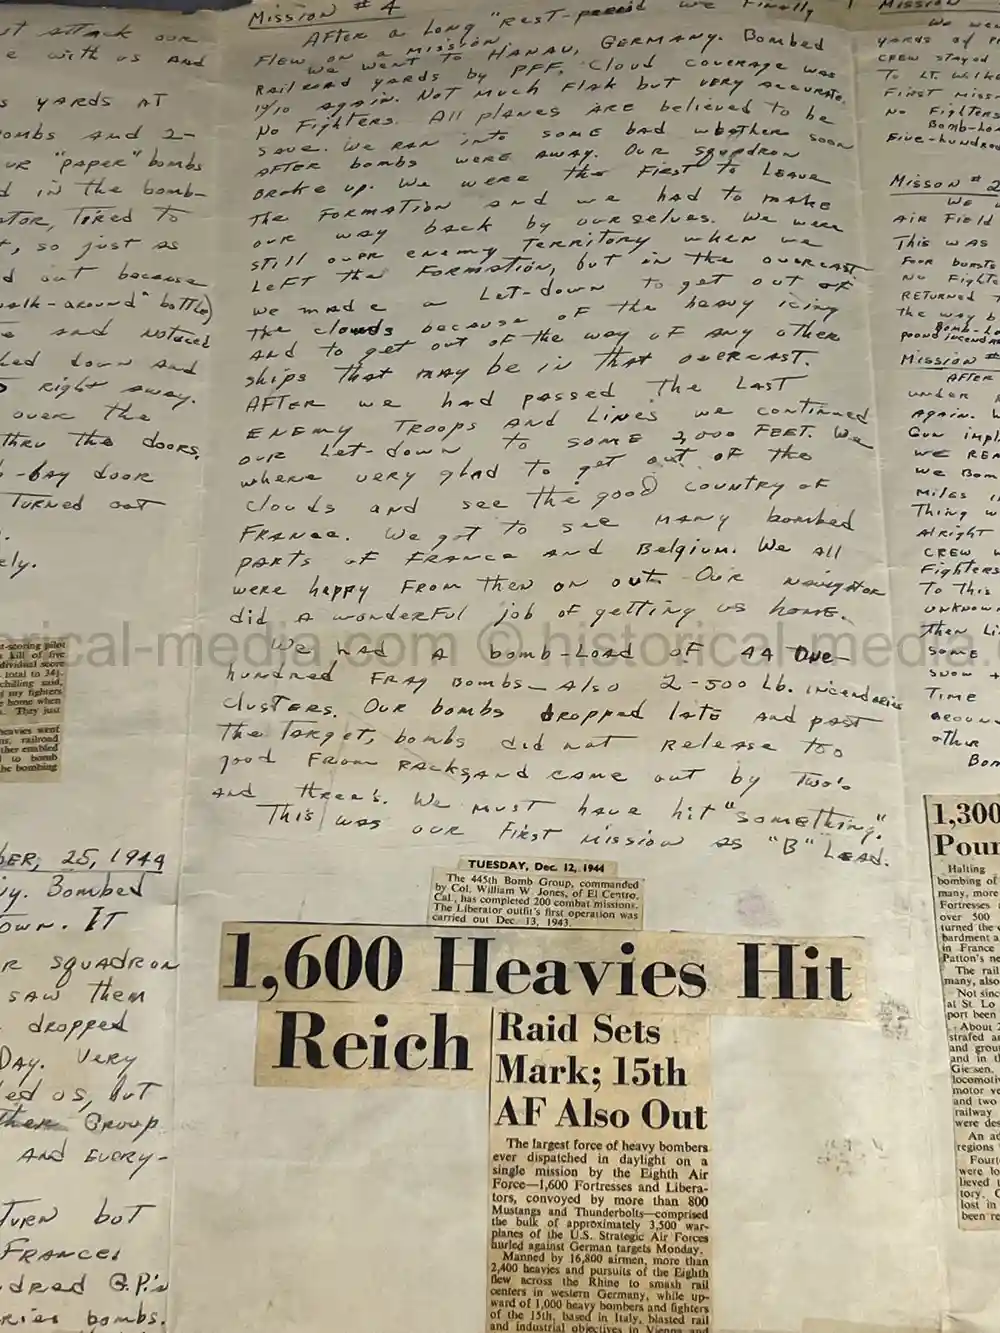 Mission # 4
After a long "rest-period" we finally
flew on a mission.
We went to Hanau, Germany. Bombed
railroad yards by PFF. Cloud coverage was
10/10 again. Not much flak but very accurate.
No fighters. All planes are believed to be
save. We ran into some bad whether soon
after bombs were away. Our squadron
broke up. We were the first to leave
the formation and we had to make
our way back by ourselves. We were
still over enemy territory when we
left the formation, but in the overcast
we made a let-down to get out of
the clouds because of the heavy icing
and to get out of the way of any other
ships that may be in that overcast.
After we had passed the last
enemy troops and lines we continued
our let-down to some 2,000 feet. We
where very glad to get out of the
clouds and see the good country of
France. We got to see many bombed
parts of France and Belgium. We all
were happy from then on out. Our navigator
did a wonderful job of getting us home.
We had a bomb-load of 44 one-
hundred frag bombs - also 2-500 lb. incendaries
clusters. Our bombs dropped late and past
the target, bombs did not release too
good from racks and came out by two's
and three's. We must have hit "something."
This was our first mission as "B" lead.
TUESDAY, Dec. 12, 1944
The 445th Bomb Group, commanded
by Col. William W. Jones, of El Centro,
Cal., has completed 200 combat missions.
The Liberator outfit's first operation was
carried out Dec. 13, 1943.
1,600 Heavies Hit
Reich
Raid Sets
Mark; 15th
AF Also Out
The largest force of heavy bombers
ever dispatched in daylight on a
single mission by the Eighth Air
Force—1,600 Fortresses and Libera-
tors, convoyed by more than 800
Mustangs and Thunderbolts—comprised
the bulk of approximately 3,500 war-
planes of the U.S. Strategic Air Forces
hurled against German targets Monday.
Manned by 16,800 airmen, more than
2,400 heavies and pursuits of the Eighth
flew across the Rhine to smash rail
centers in western Germany, while up-
ward of 1,000 heavy bombers and fighters
of the 15th, based in Italy, blasted rail
and industrial objectives in Vienna and
attack our
with us and
yards at
bombs and 2-
"paper" bombs
in the bomb-
tired to
, so just as
out because
walk-around" bottle)
and noticed
down and
right away.
over the
thru the doors.
-bay door
turned out
25, 1944
Bombed
town. It
squadron
saw them
dropped
Day. Very
us, but
Group
and every-
turn but
France.
G.P.'s
bombs.
t-scoring pilot
kill of five
dividual score
total to 34½.
chilling said,
my fighters
home when
They just
heavies went
railroad
ther enabled
to bomb
he bombing
Mission
We
yards of
crew stayed
To Lt.
First
No fighters
Bomb-
Five-hundred
Misson # 2
We
air field
This was
Four bursts
No
returned
the way
Bomb-
pound
Mission #
After
under
again.
Gun
we
we
miles
Thing
alright
crew
Fighters
To This
unknown
Then
some
snow
Time
other
Bom
1,300
Halting
bombing of
many, more
Fortresses
over 500
turned the
bardment a
in France
Patton's
The rail
many, also
Not sinc
at St. Lo
port been
About 2
strafed
and
and in
Giessen.
locomoti
motor
and two
railway
were des
An
regions
Fourt
were lo
lieved
tory.
lost in
been re
historical-media.com © historical-media.com